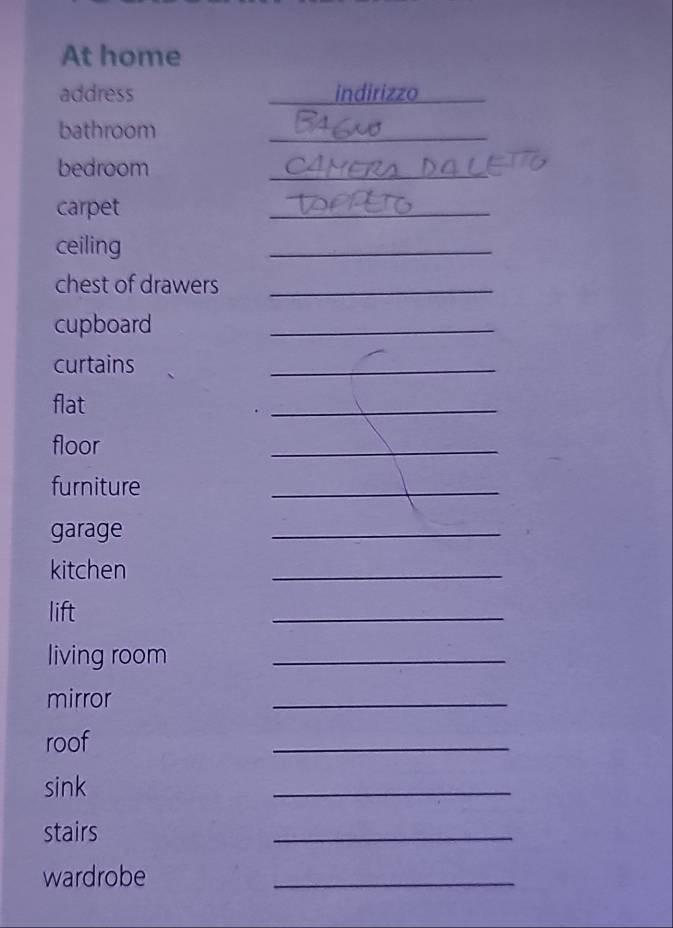 At home
address indirizzo
bathroom BAGNO
bedroom CAMERA DA LETTO
carpet TAPPETO
ceiling
chest of drawers
cupboard
curtains
flat
floor
furniture
garage
kitchen
lift
living room
mirror
roof
sink
stairs
wardrobe